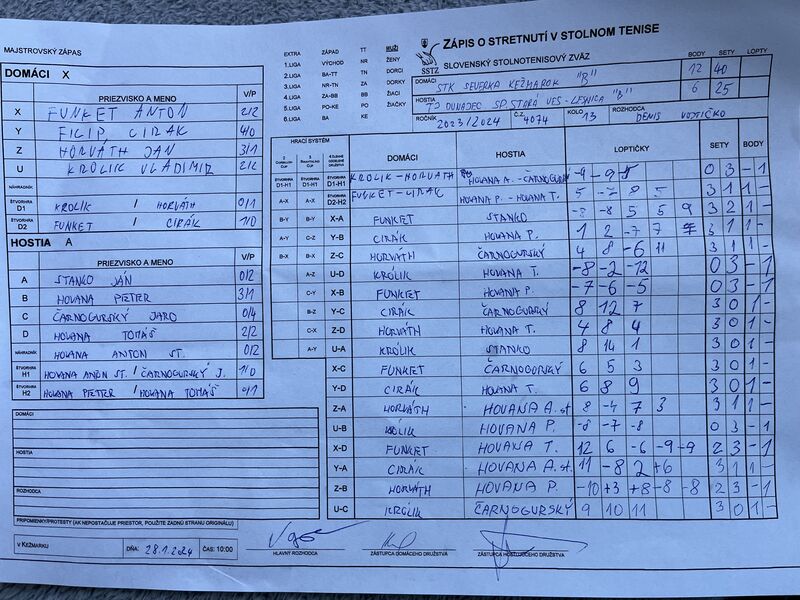 MAJSTROVSKÝ ZÁPAS
EXTRA ZÁPAD TT MUŽI
1.LIGA VÝCHOD NR ŽENY
2.LIGA BA-TT TN DORCI
3.LIGA NR-TN ZA DORKY
4.LIGA ZA-BB BB ŽIACI
5.LIGA PO-KE PO ŽIAČKY
6.LIGA BA KE
SSTZ
ZÁPIS O STRETNUTÍ V STOLNOM TENISE
SLOVENSKÝ STOLNOTENISOVÝ ZVÄZ
BODY SETY LOPTY
DOMÁCI STK SEVERKA KEŽMAROK "B" 12 40
HOSTIA TJ DUNAJEC SP.STARÁ VES-LESNICA "B" 6 25
ROČNÍK 2023/2024 Č.Z. 4074 KOLO 13 ROZHODCA DENIS
DOMÁCI X
PRIEZVISKO A MENO V/P
X FUNKET ANTON 2/2
Y FILIP CIRÁK 4/0
Z HORVÁTH JÁN 3/1
U KRÓLIK VLADIMIR 2/2
NÁHRADNÍK
ŠTVORHRA D1 KROLIK / HORVÁTH 0/1
ŠTVORHRA D2 FUNKET / CIRÁK 1/0
HOSTIA A
PRIEZVISKO A MENO V/P
A STANKO JÁN 0/2
B HOVANA PETER 3/1
C ČARNOGURSKÝ JARO 0/4
D HOVANA TOMÁŠ 2/2
NÁHRADNÍK HOVANA ANTON ST. 0/2
ŠTVORHRA H1 HOVANA ANTON ST. / ČARNOGURSKÝ J. 1/0
ŠTVORHRA H2 HOVANA PETER / HOVANA TOMÁŠ 0/1
HRACÍ SYSTÉM
DOMÁCI HOSTIA LOPTIČKY SETY BODY
D1-H1 D1-H1 D1-H1 KROLIK-HORVATH HOVANA A.-ČARNOGURSKÝ -9 -9 -5 0 3 - 1
A-X A-X D2-H2 FUNKET-CIRAK HOVANA P.-HOVANA T. 5 -7 8 5 3 1 1 -
B-Y B-Y X-A FUNKET STANKO -8 5 5 9 3 2 1 -
A-Y C-Z Y-B CIRÁK HOVANA P. 1 2 -7 7 3 1 1 -
B-X B-X Z-C HORVÁTH ČARNOGURSKÝ 4 8 -6 11 3 1 1 -
A-Z U-D KRÓLIK HOVANA T. -8 -2 -12 0 3 - 1
C-Y X-B FUNKET HOVANA P. -7 -6 -5 0 3 - 1
B-Z Y-C CIRÁK ČARNOGURSKÝ 8 12 7 3 0 1 -
C-X Z-D HORVÁTH HOVANA T. 4 8 4 3 0 1 -
A-Y U-A KRÓLIK STANKO 8 14 1 3 0 1 -
X-C FUNKET ČARNOGORSKÝ 6 5 3 3 0 1 -
Y-D CIRÁK HOVANA T. 6 8 9 3 0 1 -
Z-A HORVÁTH HOVANA A.st 8 -4 7 3 3 1 1 -
U-B KRÓLIK HOVANA P. -8 -7 -8 0 3 - 1
X-D FUNKET HOVANA T. 12 6 -6 -9 -9 2 3 - 1
Y-A CIRÁK HOVANA A.st. 11 -8 2 +6 3 1 1 -
Z-B HORVÁTH HOVANA P. -10 +3 +8 -8 -8 2 3 - 1
U-C KRÓLIK ČARNOGURSKÝ 9 10 11 3 0 1 -
DOMÁCI
HOSTIA
ROZHODCA
PRIPOMIENKY/PROTESTY (AK NEPOSTAČUJE PRIESTOR, POUŽITE ZADNÚ STRANU ORIGINÁLU)
V KEŽMARKU DŇA: 28.1.2024 ČAS: 10:00
HLAVNÝ ROZHODCA
ZÁSTUPCA DOMÁCEHO DRUŽSTVA
ZÁSTUPCA HOSŤUJÚCEHO DRUŽSTVA